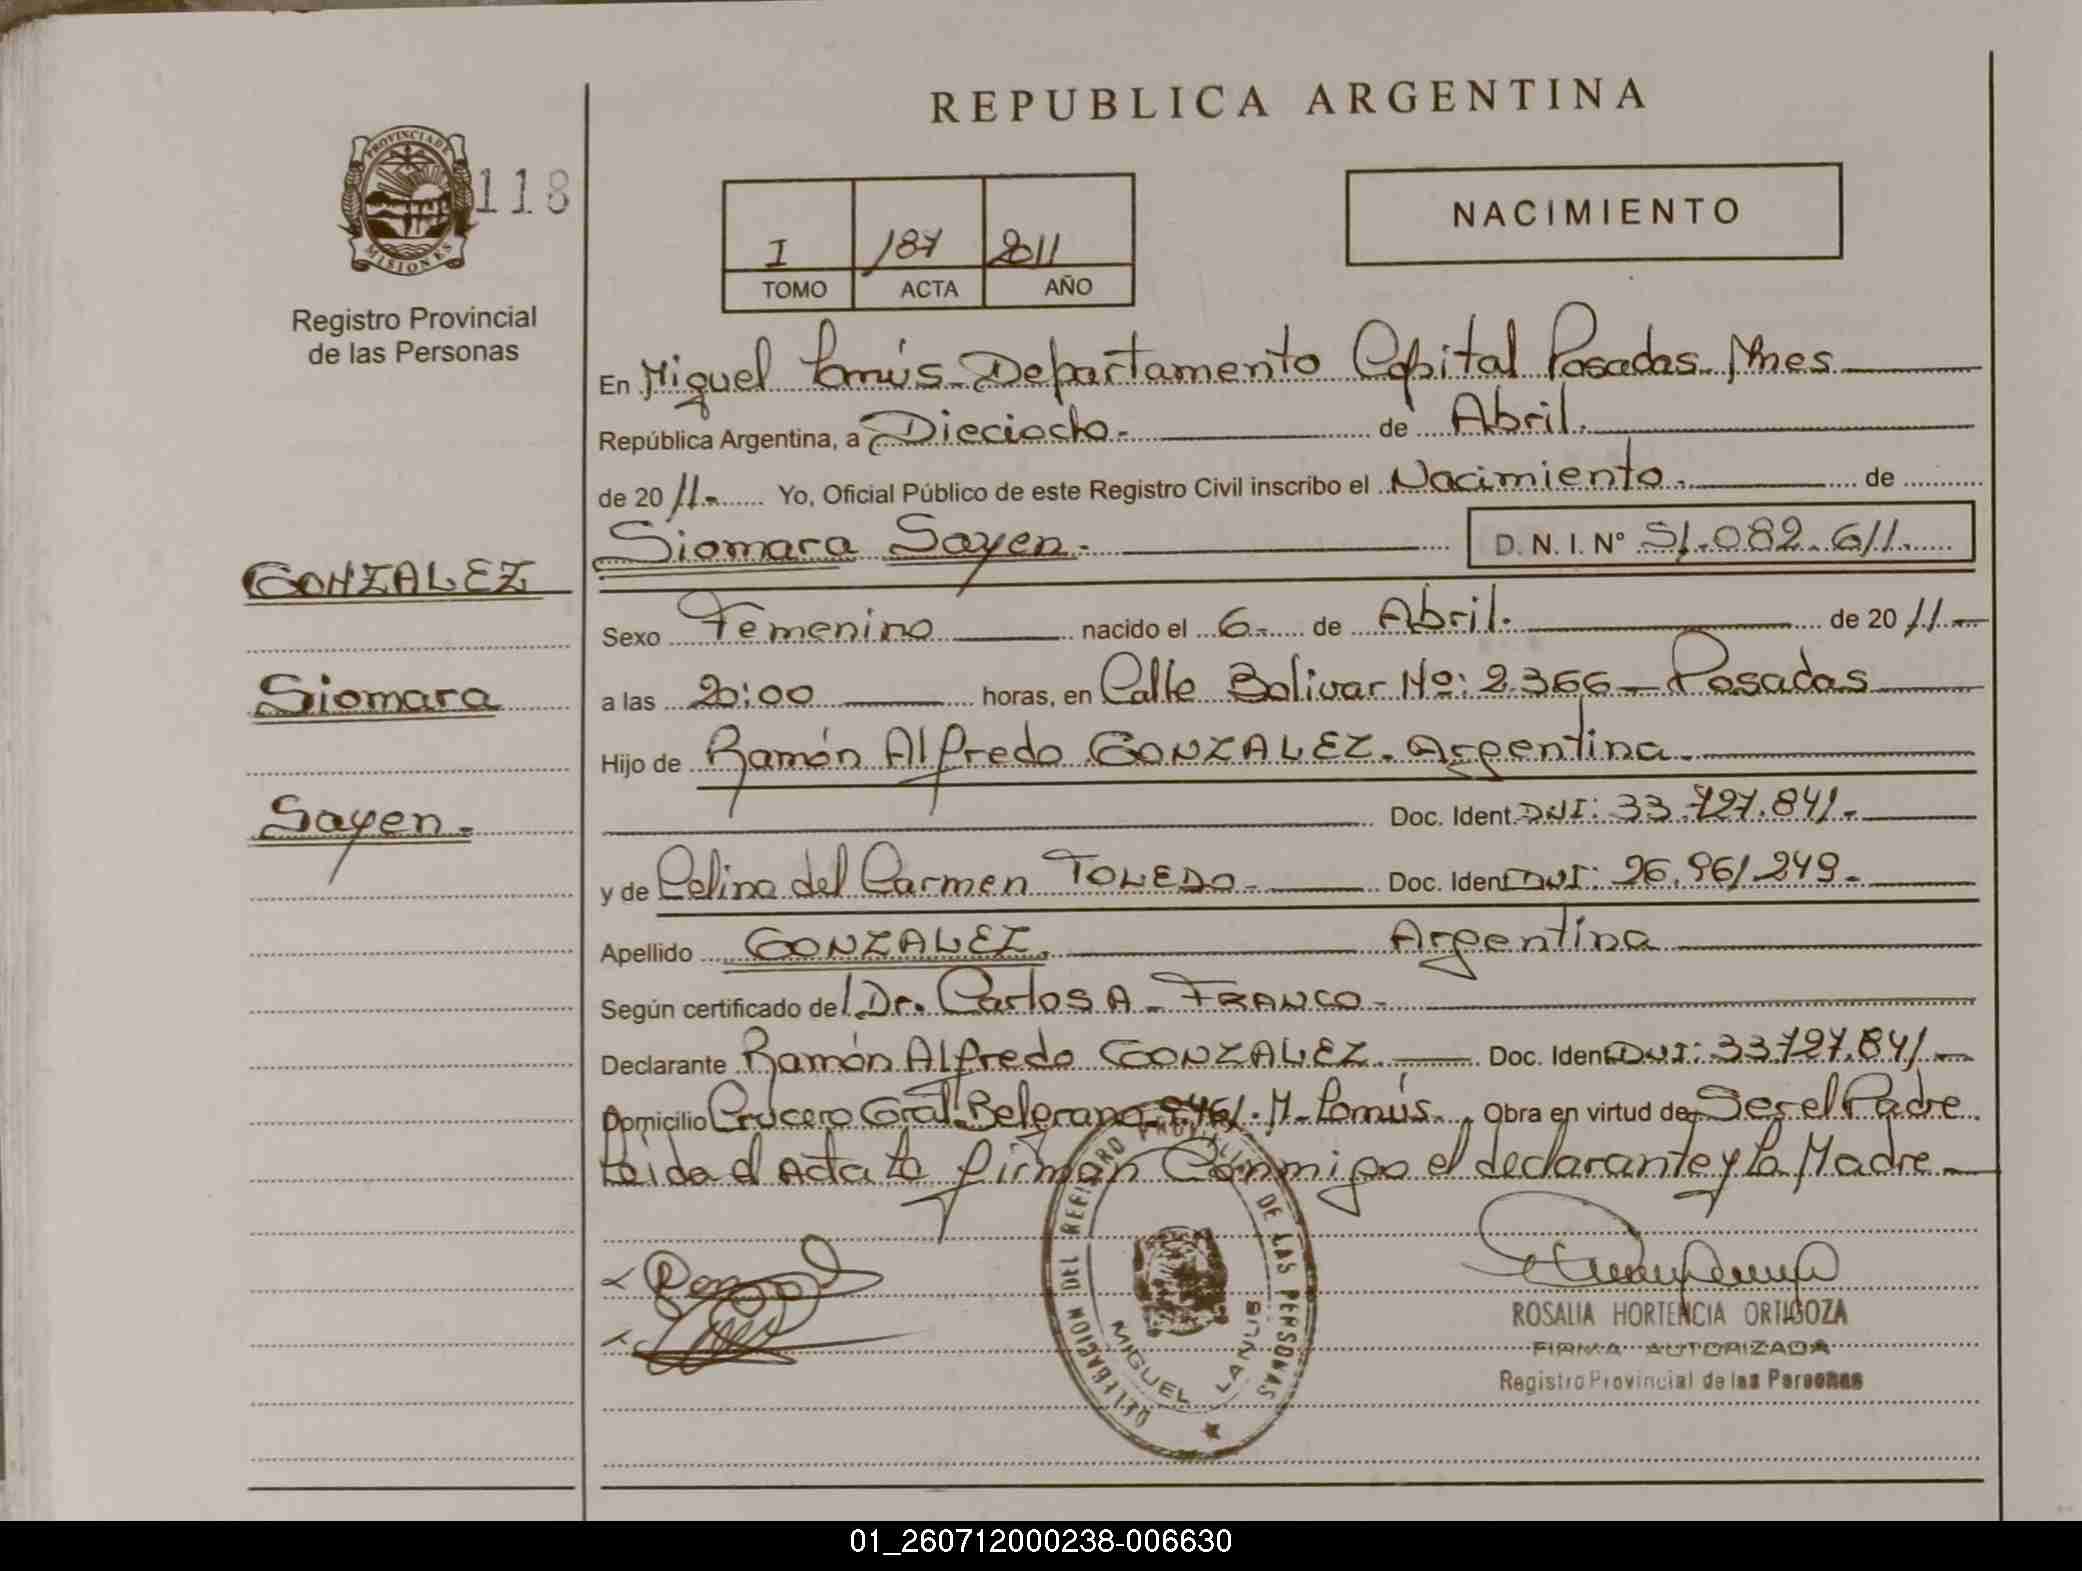 REPUBLICA ARGENTINA
PROVINCIA DE MISIONES
118
Registro Provincial
de las Personas
I 187 2011
TOMO ACTA AÑO
NACIMIENTO
En Miguel Lanús Departamento Capital Posadas Mnes
República Argentina, a Dieciocho.- de Abril.
de 2011.- Yo, Oficial Público de este Registro Civil inscribo el Nacimiento.- de
Siomara Sayen.- D. N. I. Nº 51.082.611.
GONZALEZ
Siomara
Sayen.-
Sexo Femenino nacido el 6.- de Abril. de 2011.-
a las 20:00 horas, en Calle Bolivar Nº: 2.366 - Posadas
Hijo de Ramón Alfredo GONZALEZ. Argentina.
Doc. Ident. DNI: 33.727.841.-
y de Celina del Carmen TOLEDO.- Doc. Ident. DNI: 26.961249.-
Apellido GONZALEZ. Argentina
Según certificado del Dr. Carlos A. FRANCO.-
Declarante Ramón Alfredo GONZALEZ. Doc. Ident. DNI: 33.727.841.-
Domicilio Crucero Gral. Belgrano M. Lanús. Obra en virtud de Ser el Padre
Leida el Acta la firman Conmigo el declarante y la Madre
DELEGACION DEL REGISTRO PROVINCIAL DE LAS PERSONAS
MIGUEL LANUS
ROSALIA HORTENCIA ORTIGOZA
FIRMA AUTORIZADA
Registro Provincial de las Personas
01_260712000238-006630